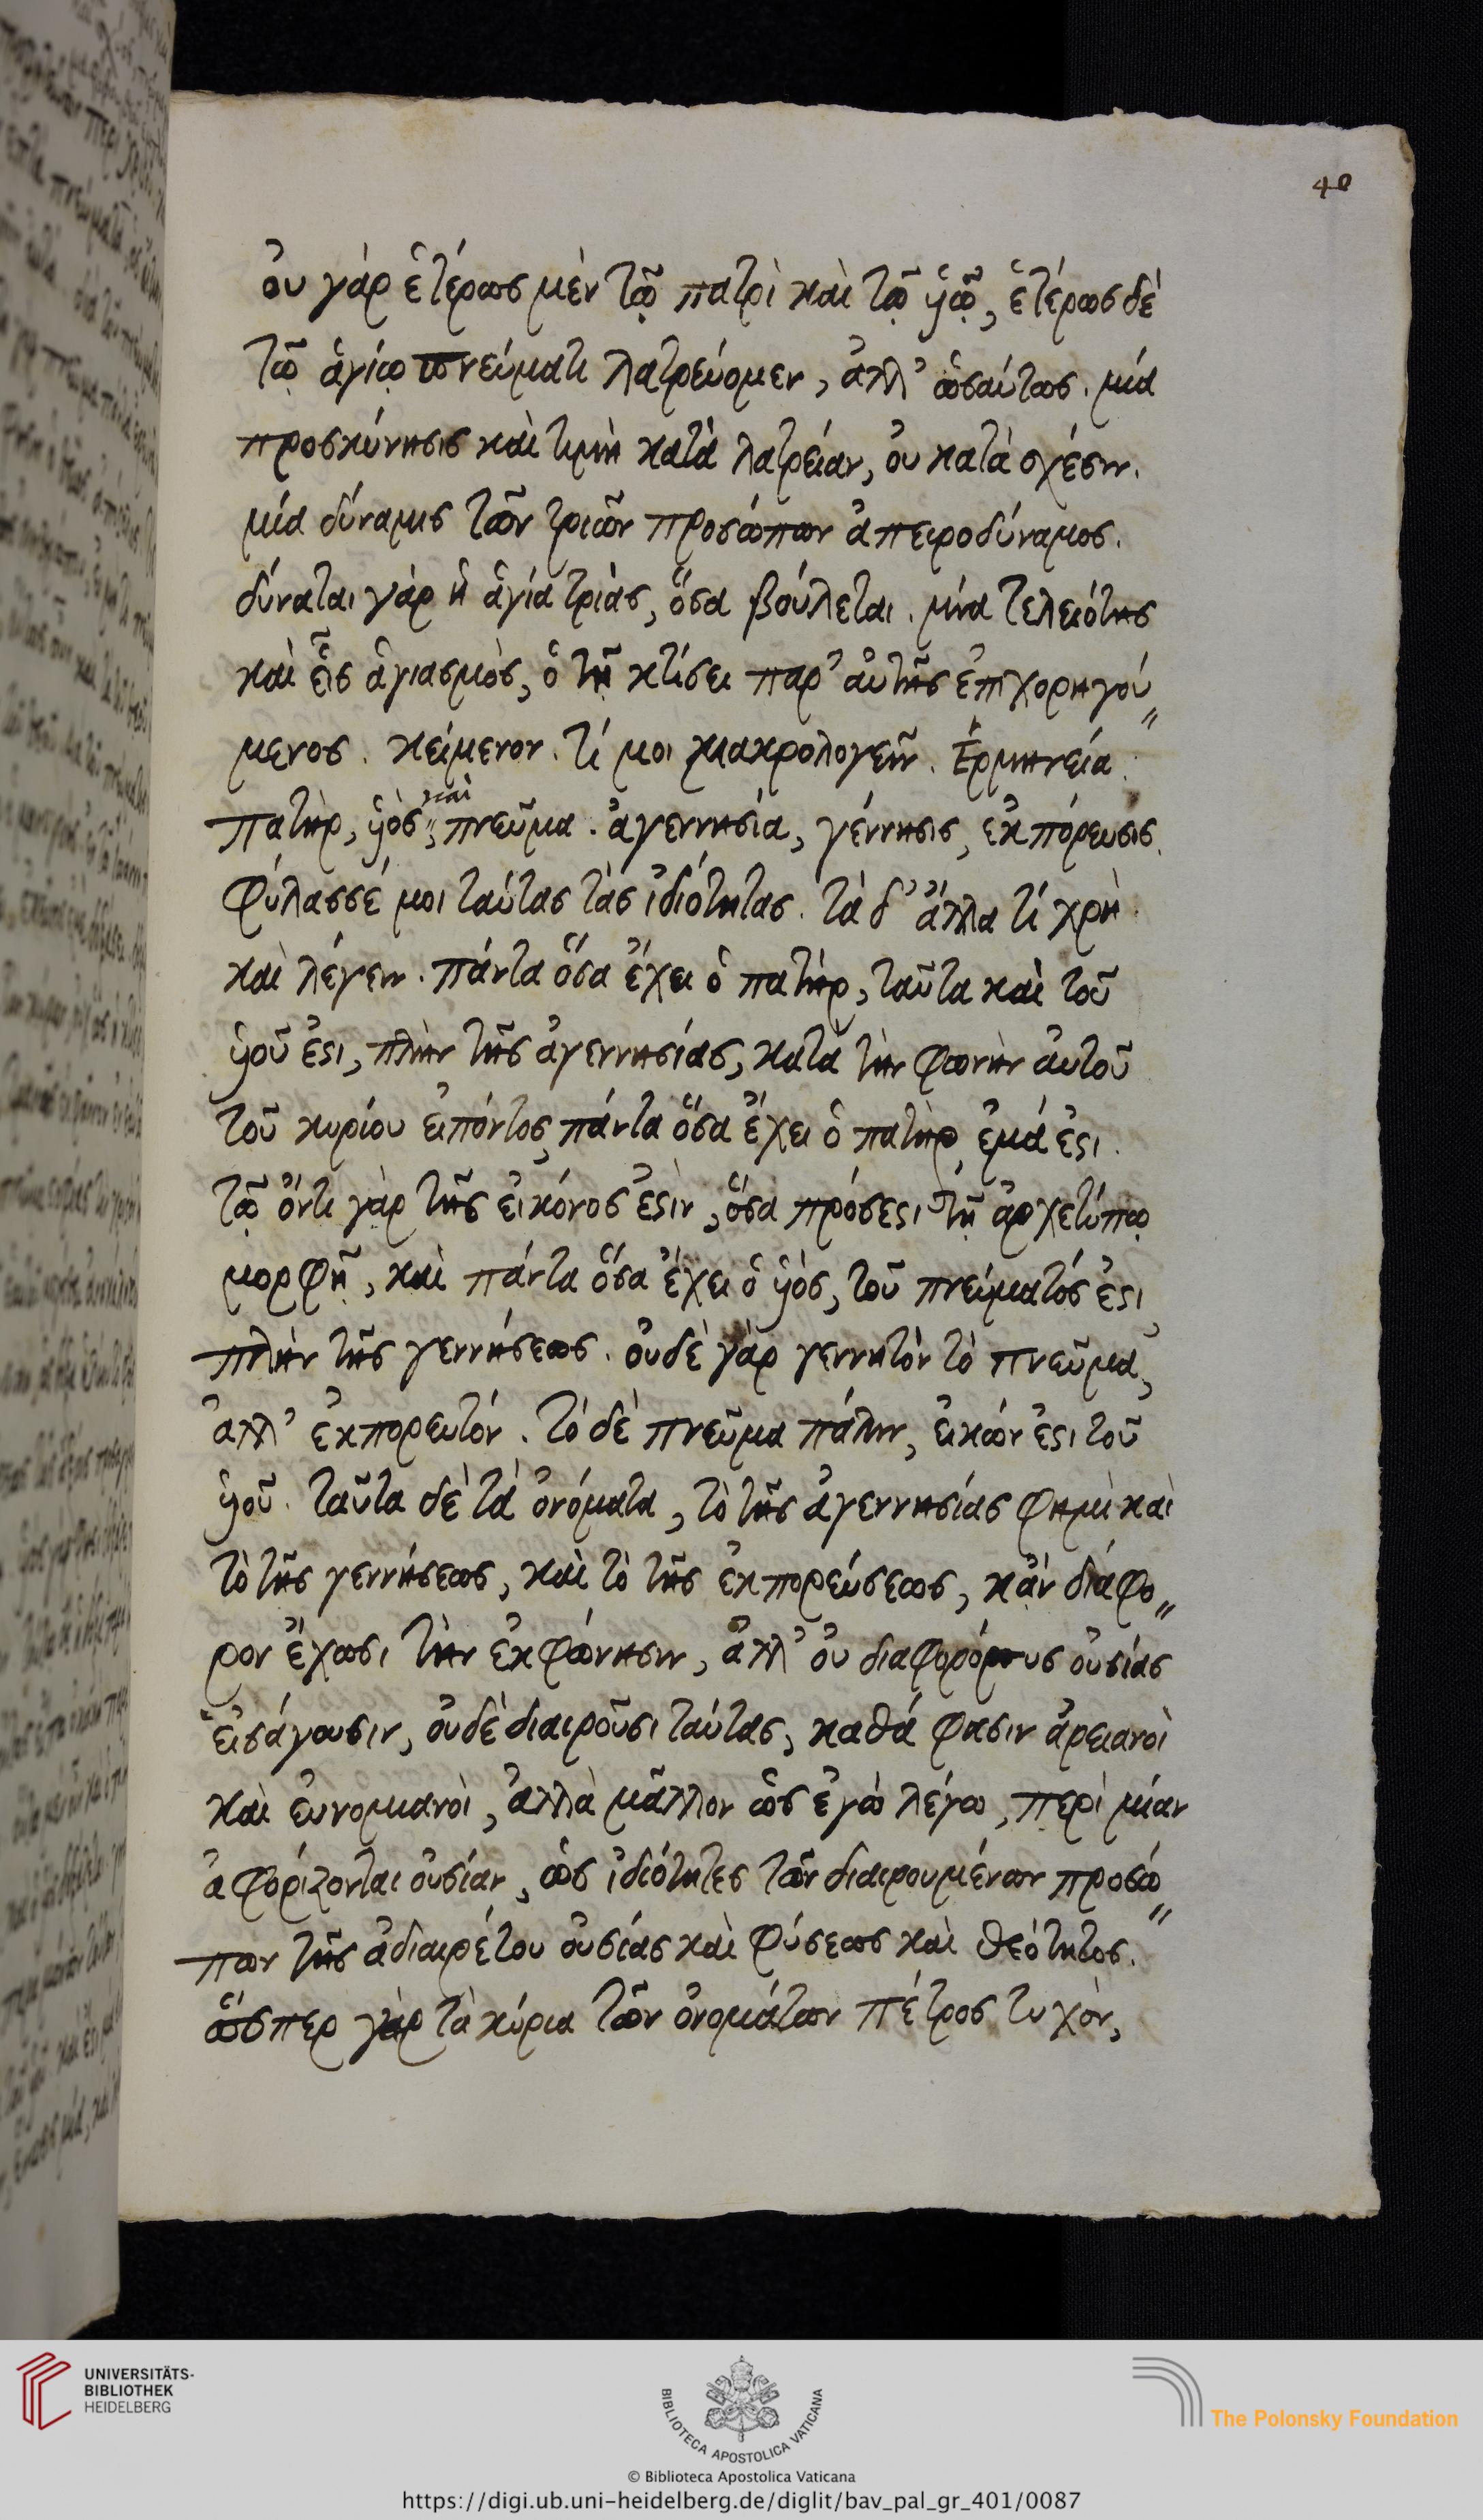 40
οὐ γὰρ ἑτέρως μὲν τῷ πατρὶ καὶ τῷ ὑῷ, ἑτέρως δὲ
τῷ ἁγίῳ πνεύματι λατρεύομεν, ἀλλ' ὡσαύτως. μία
προσκύνησις καὶ τιμὴ κατὰ λατρείαν, οὐ κατὰ σχέσιν.
μία δύναμις τῶν τριῶν προσώπων ἀπειροδύναμος.
δύναται γὰρ ἡ ἁγία τριὰς, ὅσα βούλεται. μία τελειότης
καὶ εἷς ἁγιασμὸς, ὁ τῇ κτίσει παρ' αὐτῆς ἐπιχορηγού„
μενος. κείμενον. τί μοι μακρολογεῖν. Ἑρμηνεία.
πατὴρ, ὑὸς, καὶ πνεῦμα. ἀγεννησία, γέννησις, ἐκπόρευσις.
Φύλασσέ μοι ταύτας τὰς ἰδιότητας. τὰ δ' ἄλλα τί χρὴ
καὶ λέγειν. πάντα ὅσα ἔχει ὁ πατὴρ, ταῦτα καὶ τοῦ
ὑοῦ ἐστι, πλὴν τῆς ἀγεννησίας, κατὰ τὴν φωνὴν αὐτοῦ
τοῦ κυρίου εἰπόντος, πάντα ὅσα ἔχει ὁ πατὴρ, ἐμά ἐστι.
τῷ ὄντι γὰρ τῆς εἰκόνος ἐστὶν, ὅσα πρόσεστι τῇ ἀρχετύπῳ
μορφῇ, καὶ πάντα ὅσα ἔχει ὁ ὑὸς, τοῦ πνεύματός ἐστι,
πλὴν τῆς γεννήσεως. οὐδὲ γὰρ γεννητὸν τὸ πνεῦμα,
ἀλλ' ἐκπορευτόν. τὸ δὲ πνεῦμα πάλιν, εἰκών ἐστι τοῦ
ὑοῦ. ταῦτα δὲ τὰ ὀνόματα, τὸ τῆς ἀγεννησίας φημὶ καὶ
τὸ τῆς γεννήσεως, καὶ τὸ τῆς ἐκπορεύσεως, κἂν διάφο„
ρον ἔχωσι τὴν ἐκφώνησιν, ἀλλ' οὐ διαφορόρους οὐσίας
εἰσάγουσιν, οὐδὲ διαιροῦσι ταύτας, καθά φασιν ἀρειανοὶ
καὶ εὐνομιανοὶ, ἀλλὰ μᾶλλον ὡς ἐγὼ λέγω, περὶ μίαν
ἀφορίζονται οὐσίαν, ὡς ἰδιότητες τῶν διαιρουμένων προσώ„
πων τῆς ἀδιαιρέτου οὐσίας καὶ φύσεως καὶ θεότητος.
ὥσπερ γὰρ τὰ κύρια τῶν ὀνομάτων πέτρος τυχὸν,
UNIVERSITÄTS-
BIBLIOTHEK
HEIDELBERG
BIBLIOTECA APOSTOLICA VATICANA
© Biblioteca Apostolica Vaticana
The Polonsky Foundation
https://digi.ub.uni-heidelberg.de/diglit/bav_pal_gr_401/0087